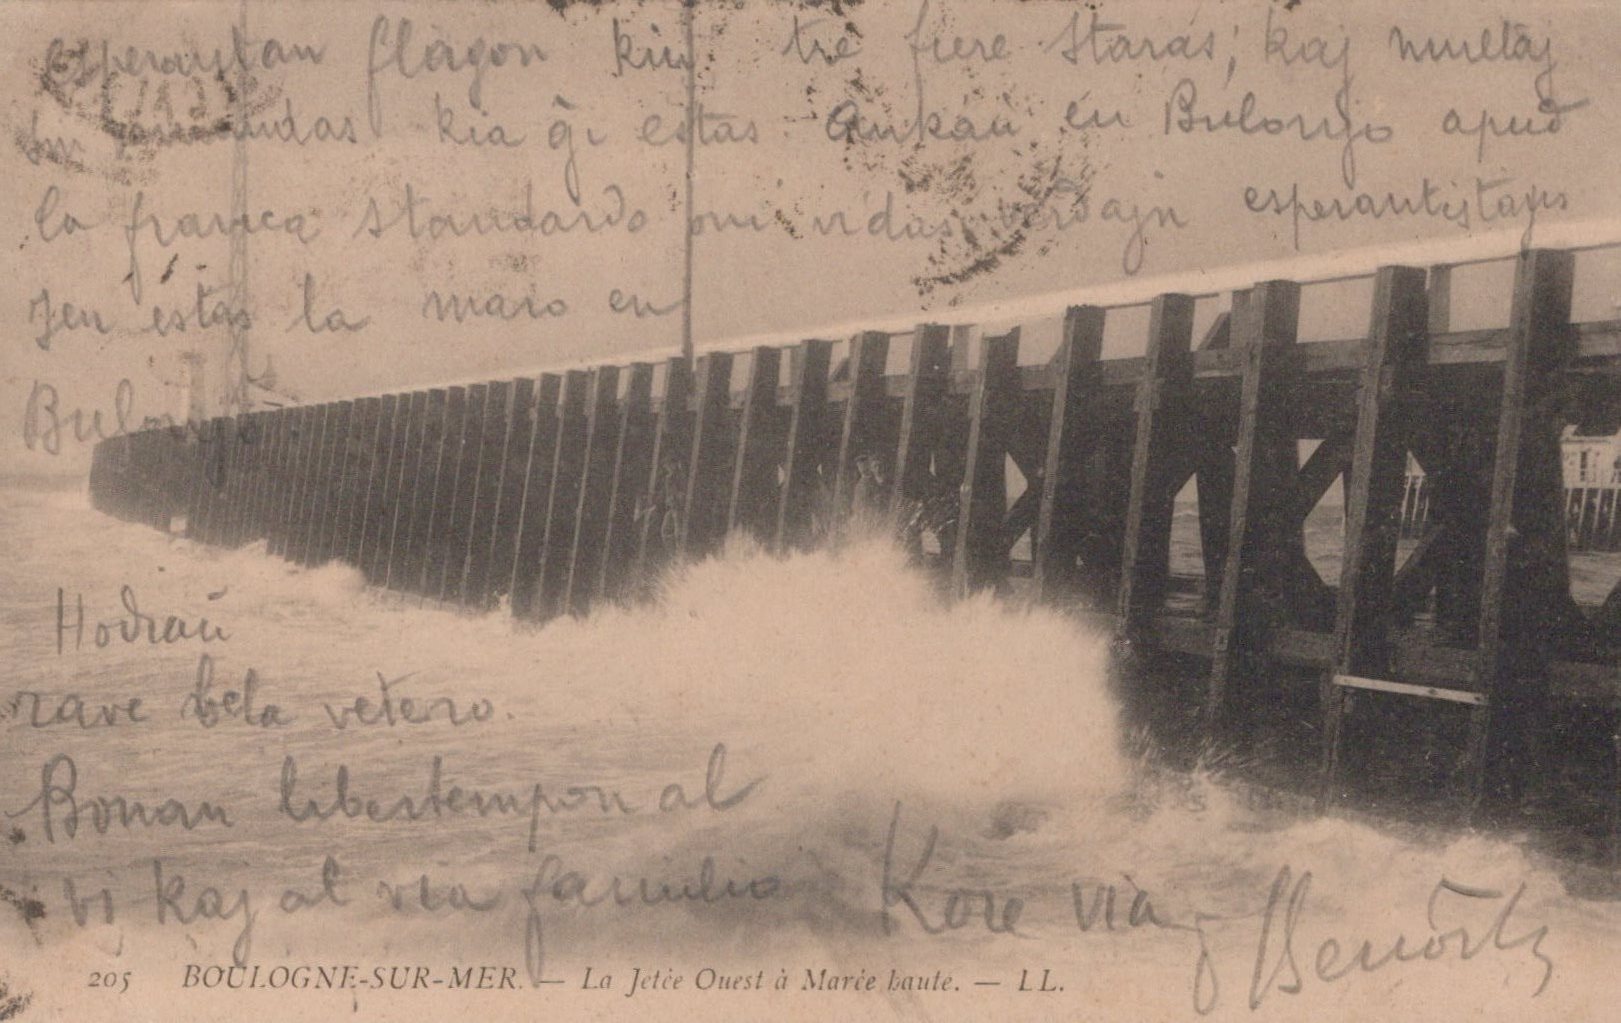 esperantan flagon kiu tre fiere staras; kaj multaj
kia ĝi estas. Ankaŭ en Bulonjo apud
la franca standardo oni vidas verdajn esperantistajn
Jen estas la maro en
Bulonjo.
Hodiaŭ
rave bela vetero.
Bonan libertempon al
vi kaj al via familio Kore via
205 BOULOGNE-SUR-MER. — La Jetée Ouest à Marée haute. — LL.